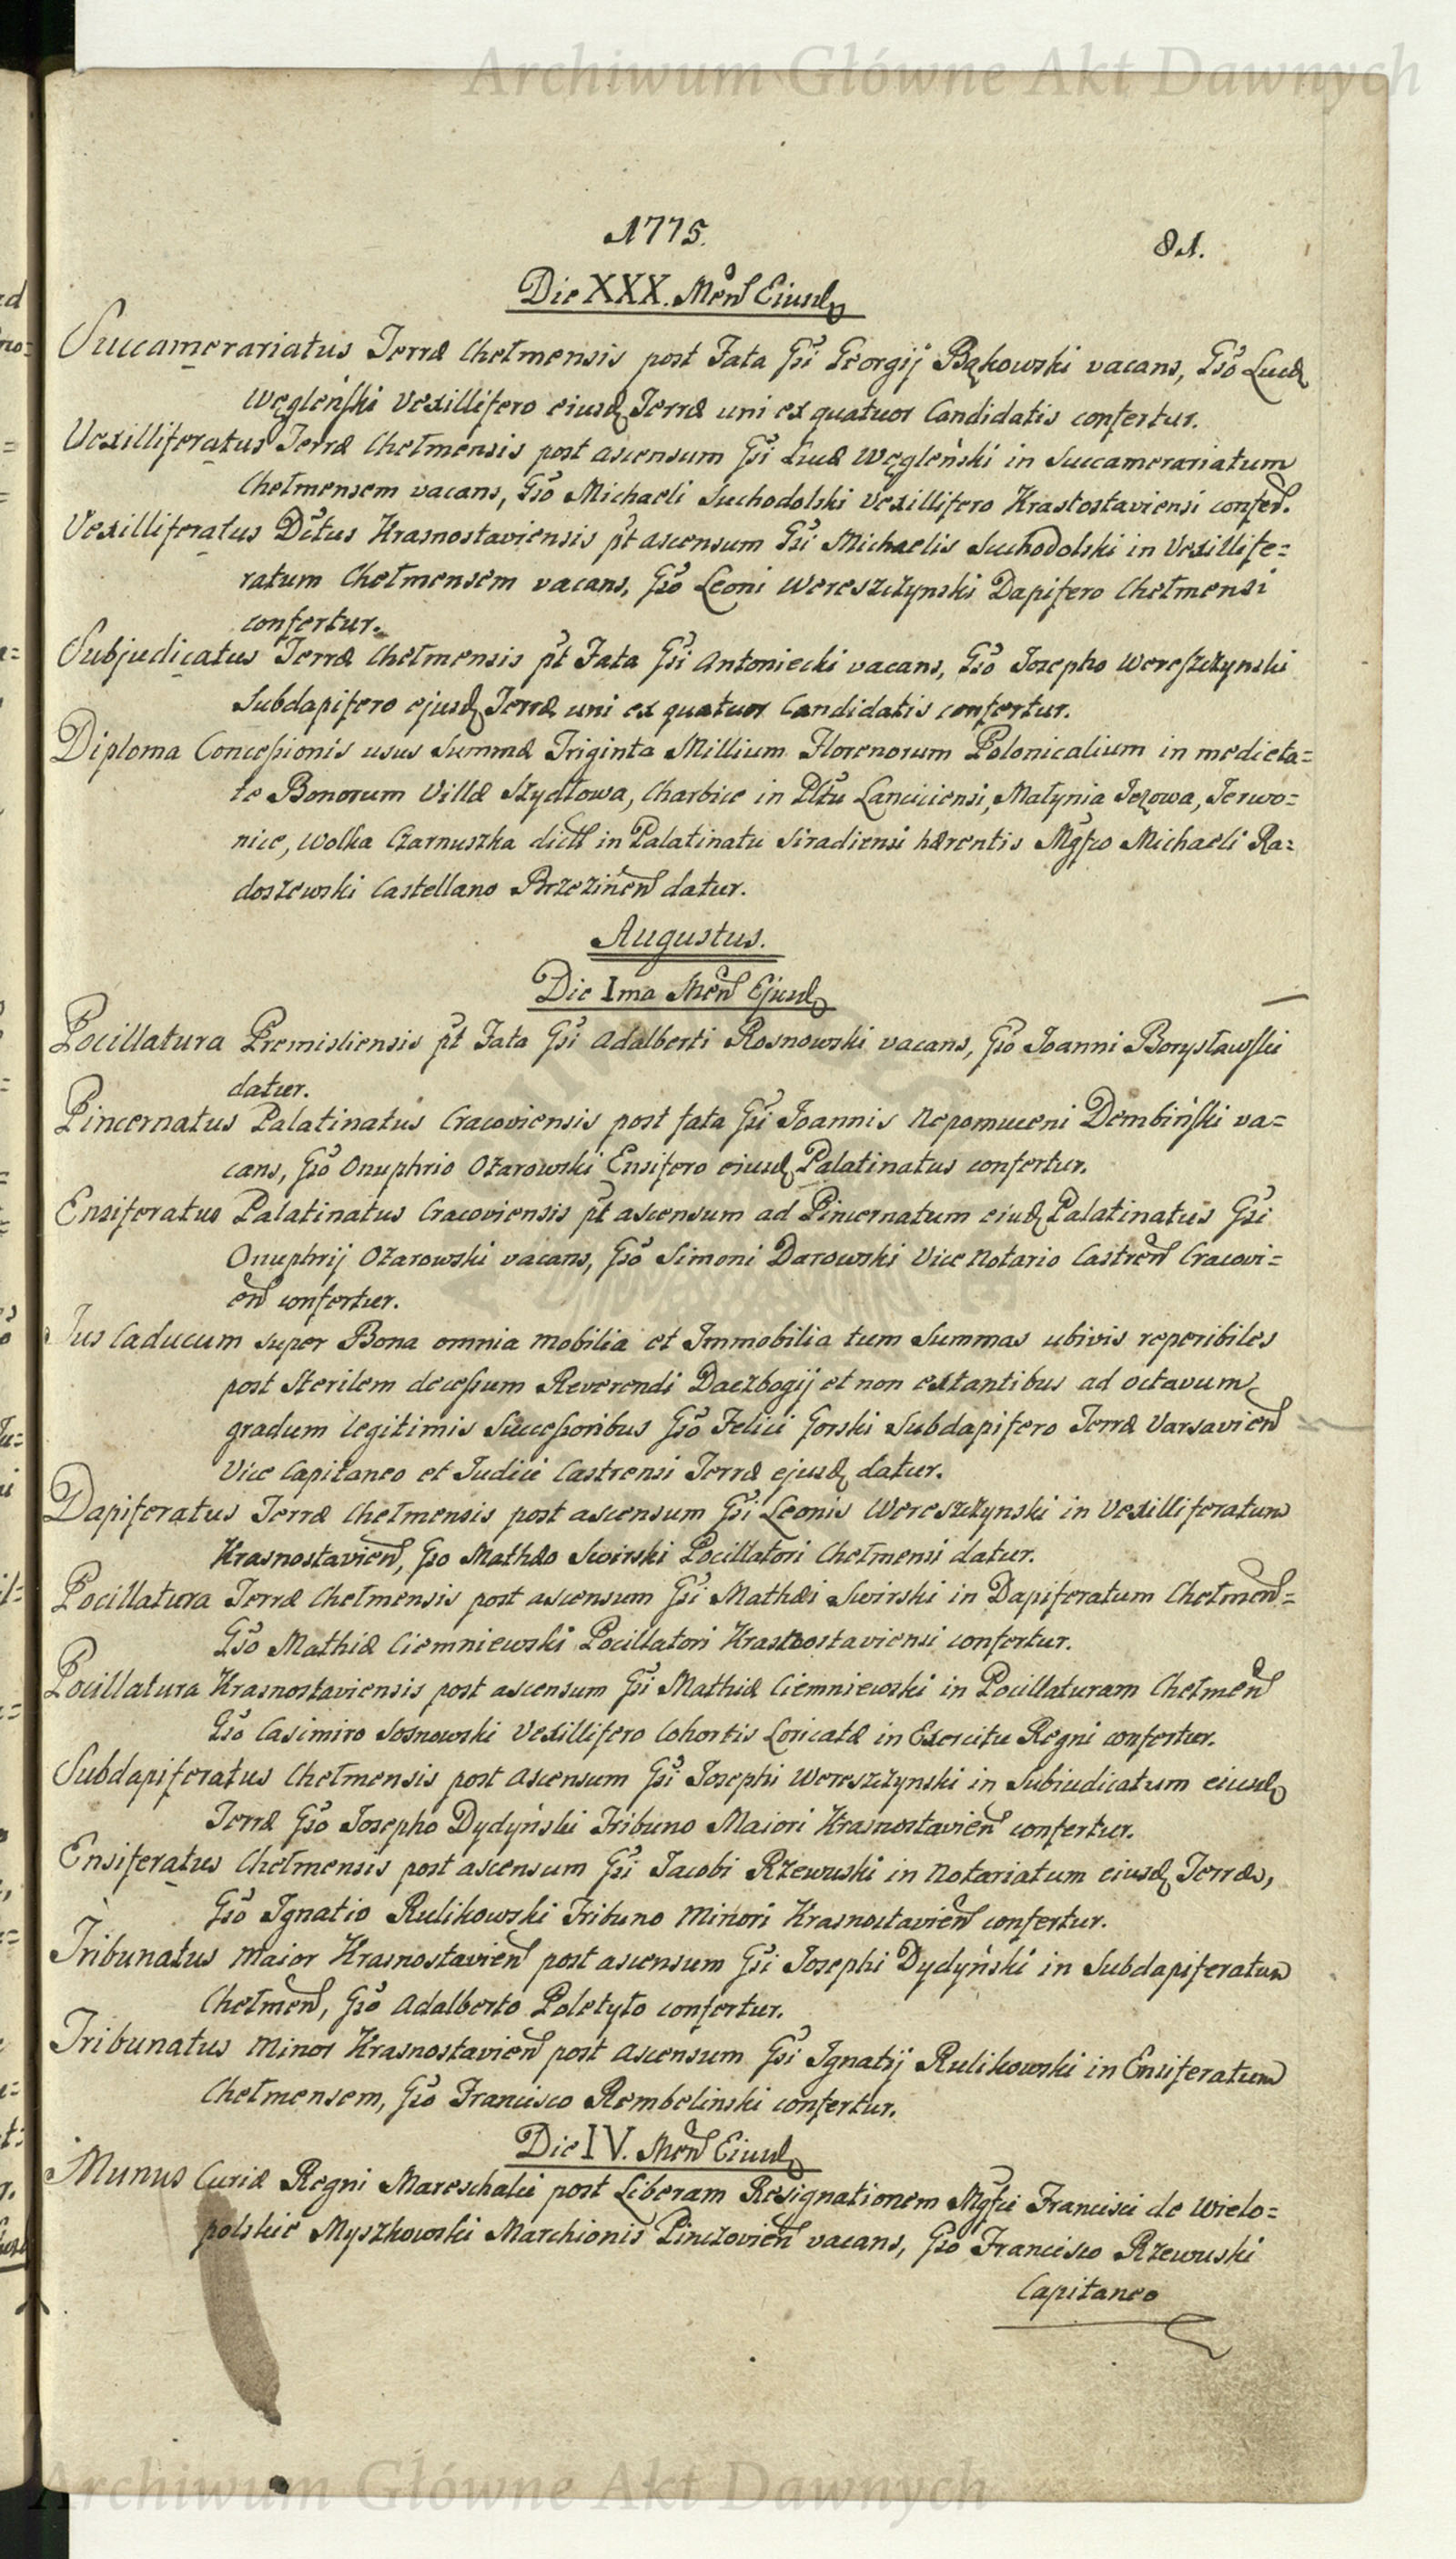 Archiwum Główne Akt Dawnych
1775.
81.
Die XXX. Men̄ Eiusd
Succamerariatus Terræ Chełmensis post Fata Gsi Georgij Bąkowski vacans, Gso Lucæ
Węgleński Vexillifero eiusd Terræ uni ex quatuor Candidatis confertur.
Vexilliferatus Terræ Chełmensis post ascensum Gsi Lucæ Węgleński in Succamerariatum
Chełmensem vacans, Gso Michaeli Suchodolski Vexillifero Krastostaviensi confer.
Vexilliferatus Dctus Krasnostaviensis pt ascensum Gsi Michaelis Suchodolski in Vexillife=
ratum Chełmensem vacans, Gso Leoni Wereszczynski Dapifero Chełmensi
confertur.
Subjudicatus Terræ Chełmensis pt Fata Gsi Antoniecki vacans, Gso Josepho Wereszczynski
Subdapifero ejusd Terræ uni ex quatuor Candidatis confertur.
Diploma Concessionis usus Summæ Triginta Millium Florenorum Polonicalium in medieta=
te Bonorum Villæ Szydłowa, Charbice in Dttu Lanciciensi, Małynia Jeżowa, Jerwo=
nice, Wolka Czarnuszka dict in Palatinatu Siradiensi hærentis Mgfco Michaeli Ra=
doszewski Castellano Brzezinen datur.
Augustus.
Die Ima Men̄ Ejusd
Pocillatura Premisliensis pt Fata Gsi Adalberti Rosnowski vacans, Gso Joanni Borysławski
datur.
Pincernatus Palatinatus Cracoviensis post fata Gsi Joannis Nepomuceni Dembiński va=
cans, Gso Onuphrio Ożarowski Ensifero eiusd Palatinatus confertur.
Ensiferatus Palatinatus Cracoviensis pt ascensum ad Pincernatum eiusd Palatinatus Gsi
Onuphrij Ożarowski vacans, Gso Simoni Darowski Vice Notario Castren Cracovi=
en confertur.
Jus Caducum super Bona omnia mobilia et Immobilia tum Summas ubivis reperibiles
post Sterilem decessum Reverendi Daczbogij et non extantibus ad octavum
gradum legitimis Successoribus Gso Felici Gorski Subdapifero Terræ Varsavien
Vice Capitaneo et Judici Castrensi Terræ ejusd datur.
Dapiferatus Terræ Chełmensis post ascensum Gsi Leonis Wereszczynski in Vexilliferatum
Krasnostavien, Gso Mathæo Swirski Pocillatori Chełmensi datur.
Pocillatura Terræ Chełmensis post ascensum Gsi Mathæi Swirski in Dapiferatum Chełmen=
Gso Mathiæ Ciemniewski Pocillatori Krastnostaviensi confertur.
Pocillatura Krasnostaviensis post ascensum Gsi Mathiæ Ciemniewski in Pocillaturam Chełmen
Gso Casimiro Sosnowski Vexillifero Cohortis Loricatæ in Exercitu Regni confertur.
Subdapiferatus Chełmensis post ascensum Gsi Josephi Wereszczynski in Subiudicatum eiusd
Terræ Gso Josepho Dydyński Tribuno Maiori Krasnostavien confertur.
Ensiferatus Chełmensis post ascensum Gsi Jacobi Rzewuski in Notariatum eiusd Terræ,
Gso Ignatio Rulikowski Tribuno Minori Krasnostavien confertur.
Tribunatus Maior Krasnostavien post ascensum Gsi Josephi Dydyński in Subdapiferatum
Chełmen, Gso Adalberto Poletyło confertur.
Tribunatus Minor Krasnostavien post ascensum Gsi Ignatij Rulikowski in Ensiferatum
Chełmensem, Gso Francisco Rembelinski confertur.
Die IV. Men̄ Eiusd
Munus Curiæ Regni Mareschalci post Liberam Resignationem Mgfci Francisci de Wielo=
polskie Myszkowski Marchionis Pinczovien vacans, Gso Francisco Rzewuski
Capitaneo
Archiwum Główne Akt Dawnych